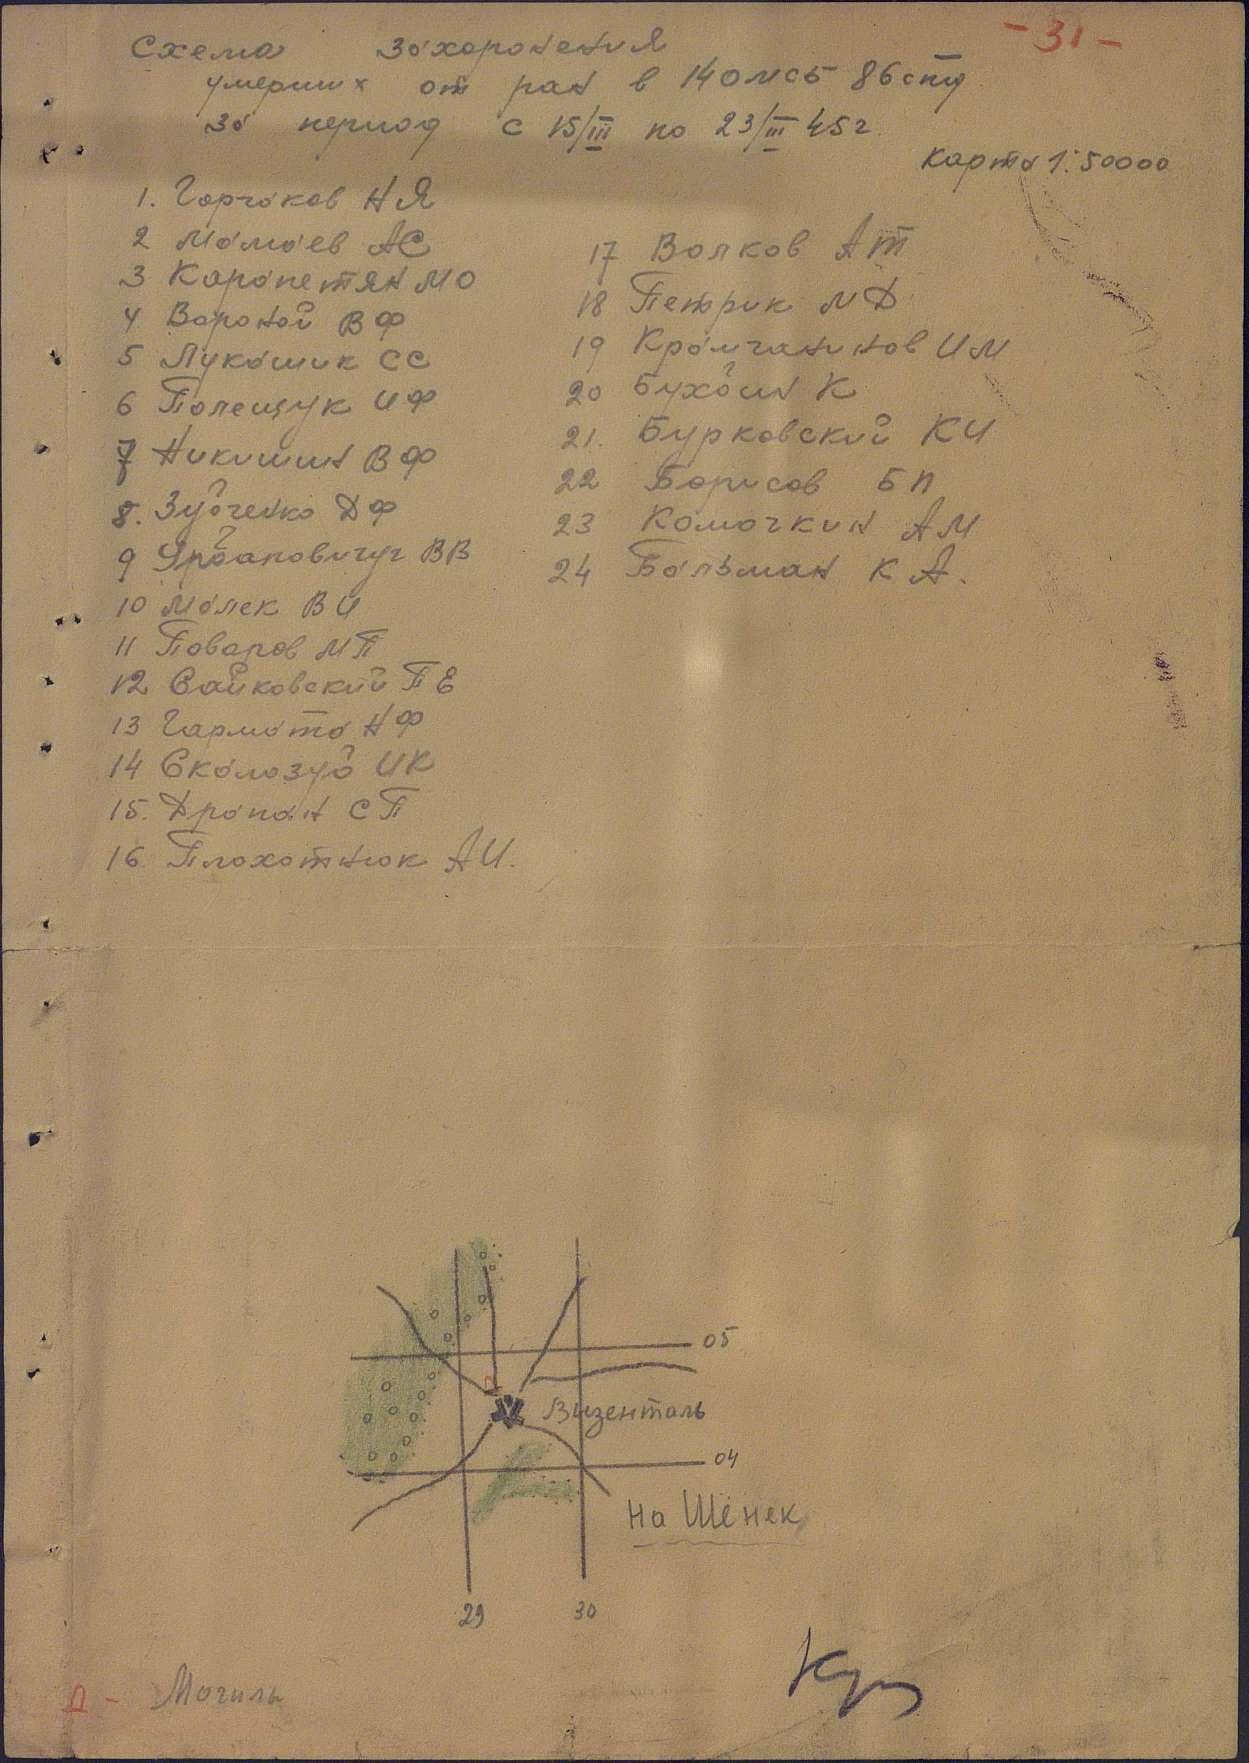 - 31 -
Схема захоронения
умерших от ран в 140 мсб 86 спд
за период с 15/III по 23/III 45г
карта 1:50000
1. Горчаков Н Я
2 Мамаев А С
3 Карапетян М О
4 Вороной В Ф
5 Лукашик С С
6 Полещук И Ф
7 Никишин В Ф
8. Зубченко Д Ф
9 Урбановичуч В В
10 Малек В И
11 Поваров М П
12 Сайковский П Е
13 Гармата Н Ф
14 Скалозуб И К
15. Драпан С П
16. Плохотнюк А И.
17 Волков А Т
18 Петрик М Д
19 Кромчанинов И М
20 Бухбин К
21. Бурковский К И
22 Борисов Б П
23 Комочкин А М
24 Бальман К А.
05
Визенталь
04
на Шёнек
29
30
П - Могилы